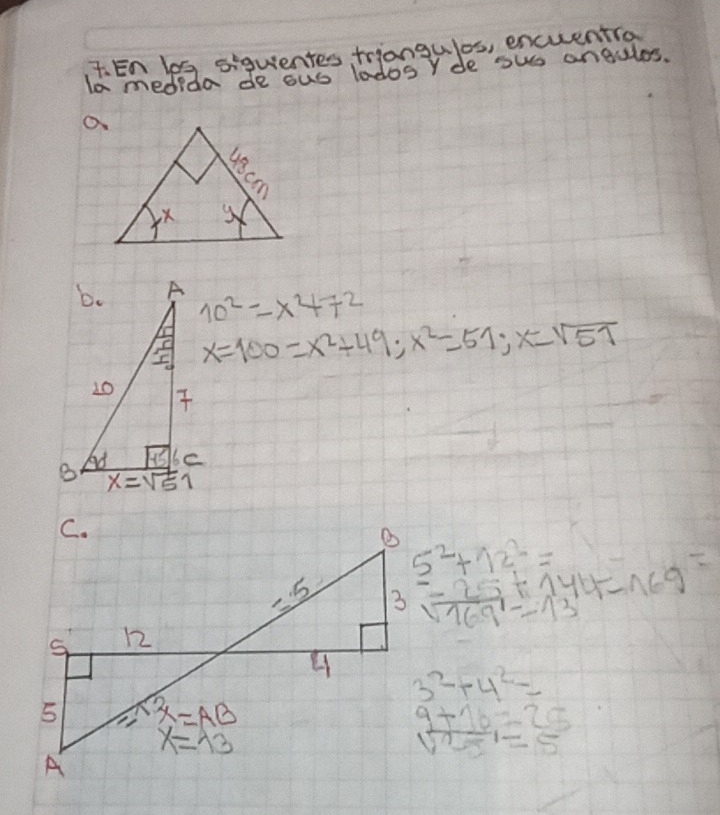 7. En los siguientes triangulos, encuentra
la medida de sus lados y de sus angulos.
a.
48cm
x
y
b.
A
10² = x²+7²
x=100=x²+49; x²=51; x=√51
10
7
B
C
x=√51
C.
B
5²+12² =
= 25+144=169 =
√169 = 13
=5
3
S
12
4
3²+4² =
9+16=25
√25 = 5
5
x=AB
x=13
A